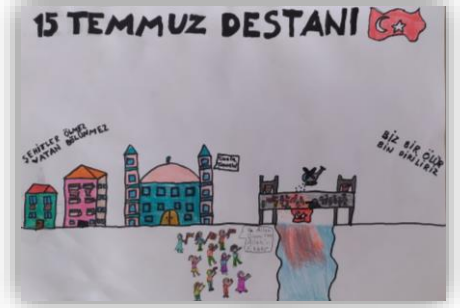 15 TEMMUZ DESTANI
ŞEHİTLER ÖLMEZ
VATAN BÖLÜNMEZ
BİZ BİR ÖLÜR
BİN DİRİLİRİZ